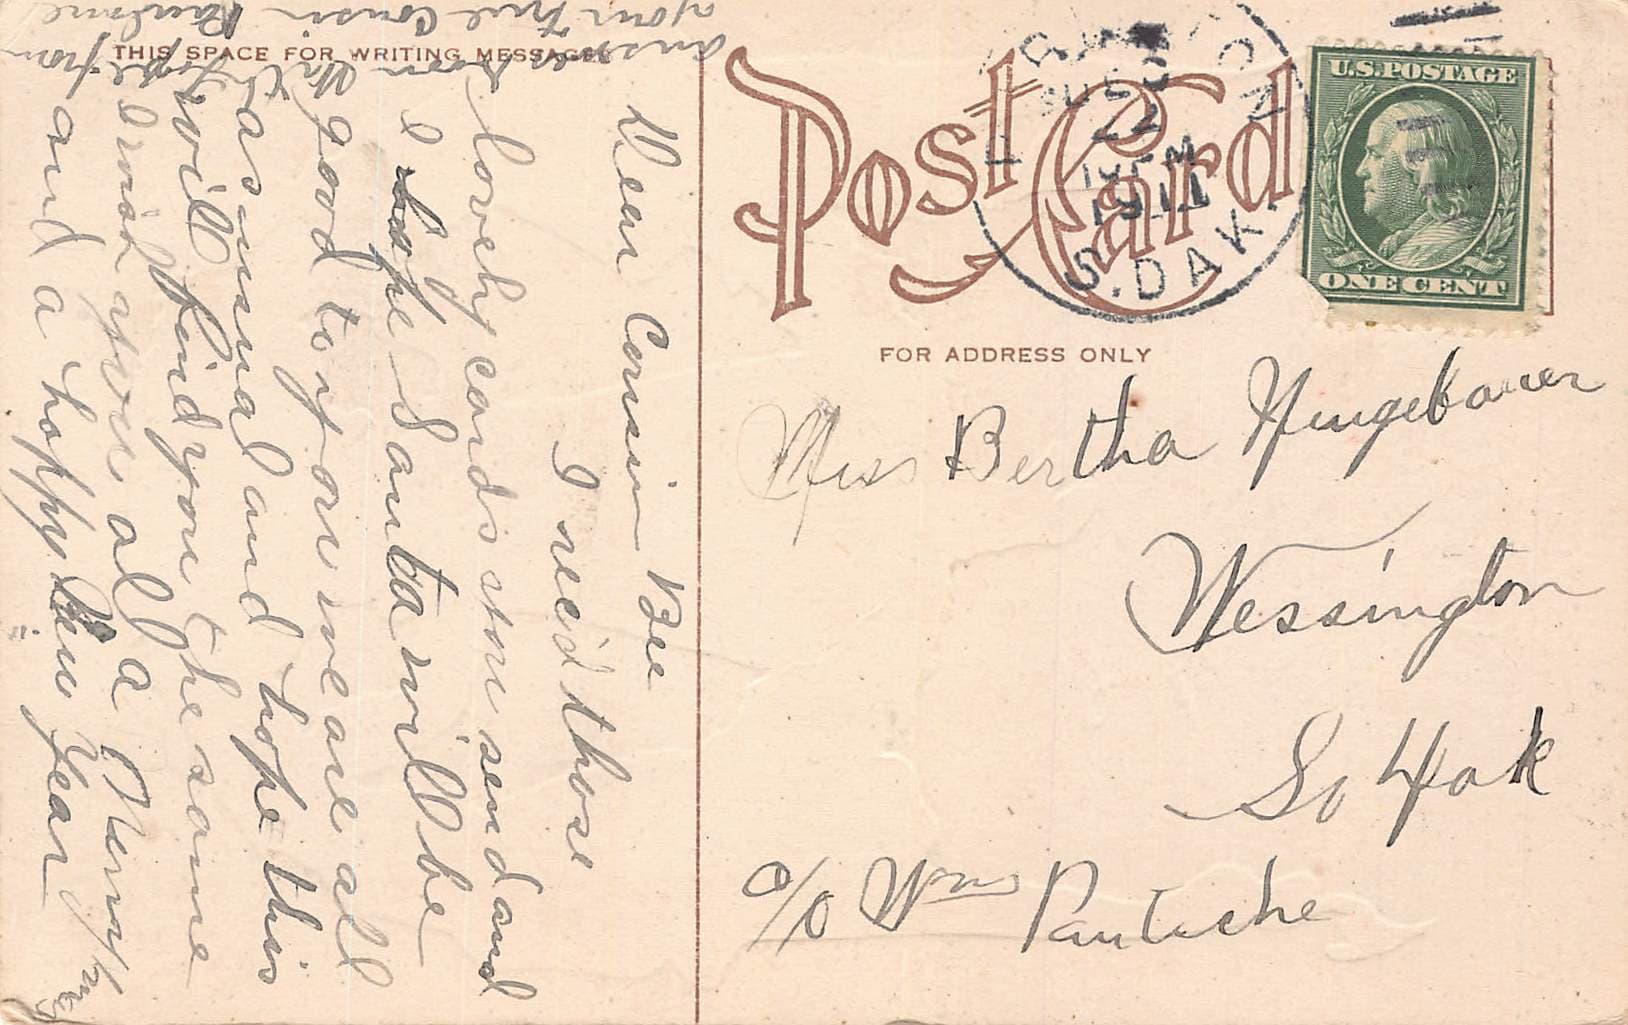 THIS SPACE FOR WRITING MESSAGES
Post Card
FOR ADDRESS ONLY
U.S. POSTAGE
ONE CENT
22
1911
S. DAK.
Miss Bertha
Wessington
So Dak
c/o Wm
Dear Cousin Bee
I rec'd those
lovely cards you send and
I hope Santa will be
good to you we are all
as usual and hope this
will find you the same
I wish you all a Merry
and a happy New Year
your true Cousin